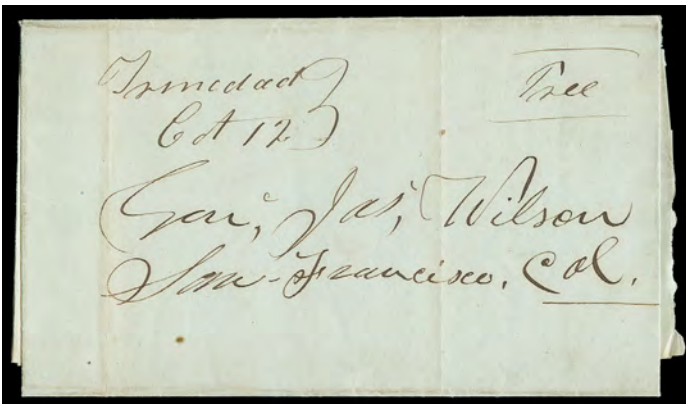 Trinidad
Oct 12
Free
Gen, Jas, Wilson
San-Francisco. Cal.